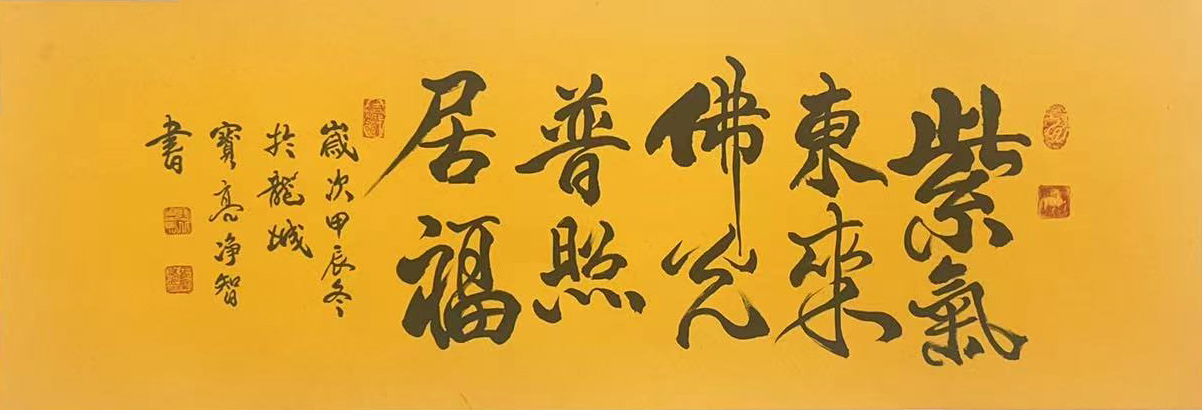 紫氣
東來
佛光
普照
居福
嵗次甲辰冬
於龍城
寳亮净智
書